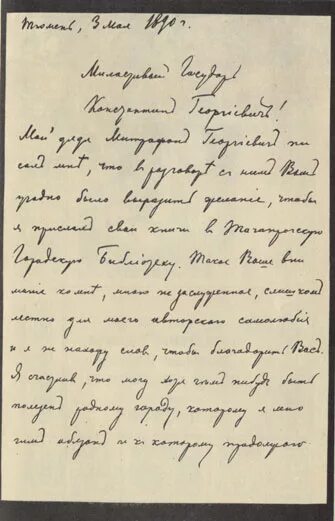 Тюмень, 3 мая 1890 г.
Милостивый Государь
Константин Георгиевич!
Мой дядя Митрофан Георгиевич пи
сал мнѣ, что въ разговорѣ съ нимъ Вамъ
угодно было выразить желаніе, чтобы
я прислалъ свои книги въ Таганрогскую
Городскую Библіотеку. Такое Ваше вни
маніе ко мнѣ, мною не заслуженное, слишкомъ
лестно для моего авторскаго самолюбія
и я не нахожу словъ, чтобы благодарить Васъ.
Я счастливъ, что могу хоть чѣмъ нибудь быть
полезенъ родному городу, которому я мно
гимъ обязанъ и къ которому продолжаю